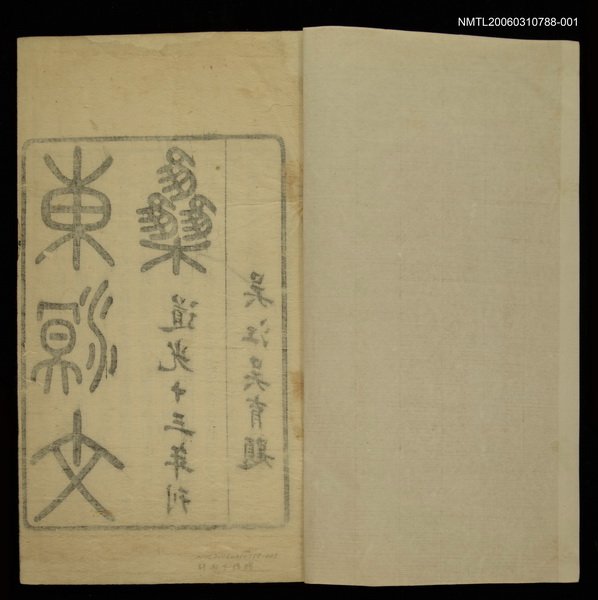 NMTL20060310788-001
東溟文
雧
道光十三年刊
吳江吳育題